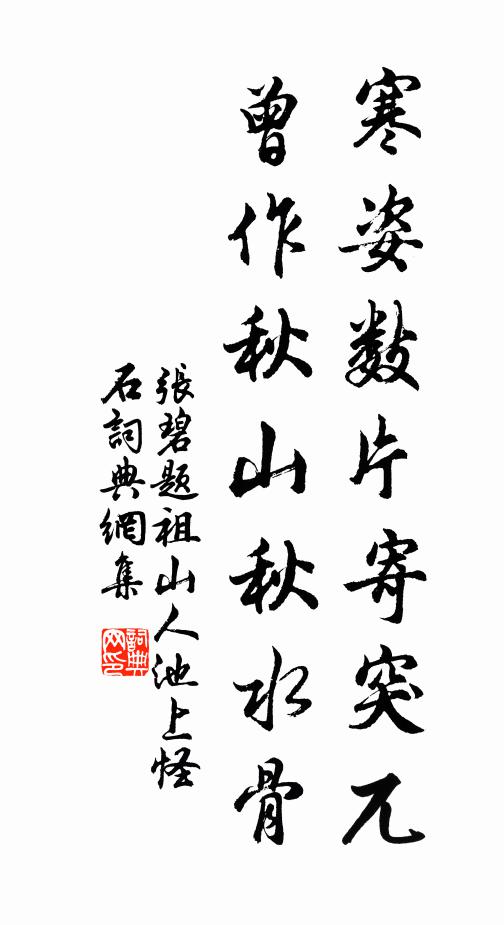 寒姿數片寄突兀
曾作秋山秋水骨
張碧題祖山人池上怪
石詞典網集
詞典網印